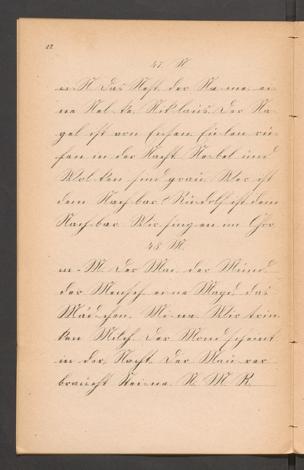 22
47. N.
n N Das Nest der Name ei
ne Nelke. Niklaus. Der Na
gel ist von Eisen. Eulen ru
fen in der Nacht. Nebel und
Wolken sind grau. Wer ist
dem Nachbar? Rudolf ist dem
Nachbar. Wir singen im Chor
48. M.
m - M. Der Mai der Mund
der Mensch eine Magd das
Mädchen. Mina. Wir trin
ken Milch. Der Mond scheint
in der Nacht. Der Mau rer
braucht Steine. N. M. R.